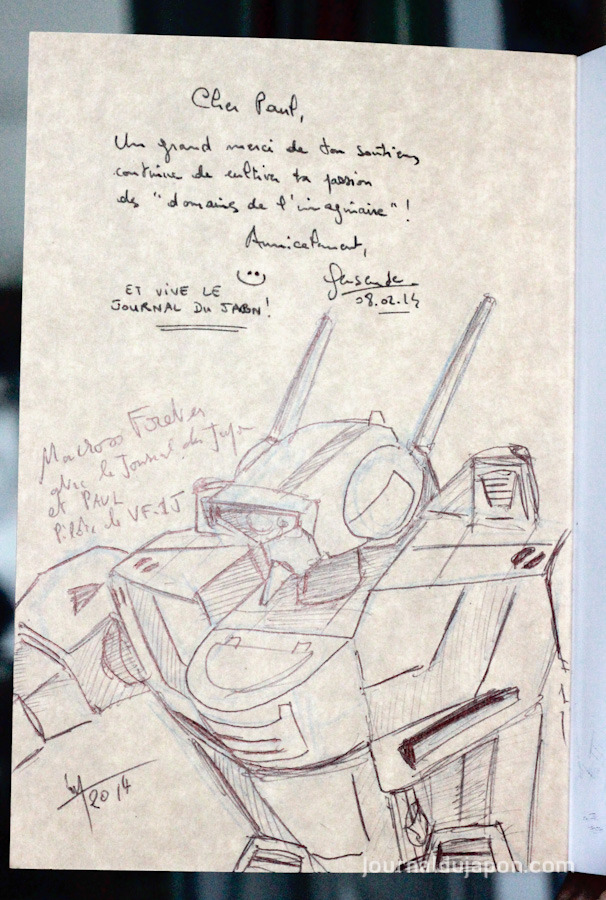 Cher Paul,
Un grand merci de ton soutiens
continue de cultiver ta passion
des "domaines de l'imaginaire"!
Amicalement,
08.02.14
ET VIVE LE
JOURNAL DU JAPON!
Macross Forever
avec le Journal du Japon
et PAUL
Pilote de VF-1J
2014
journaldujapon.com